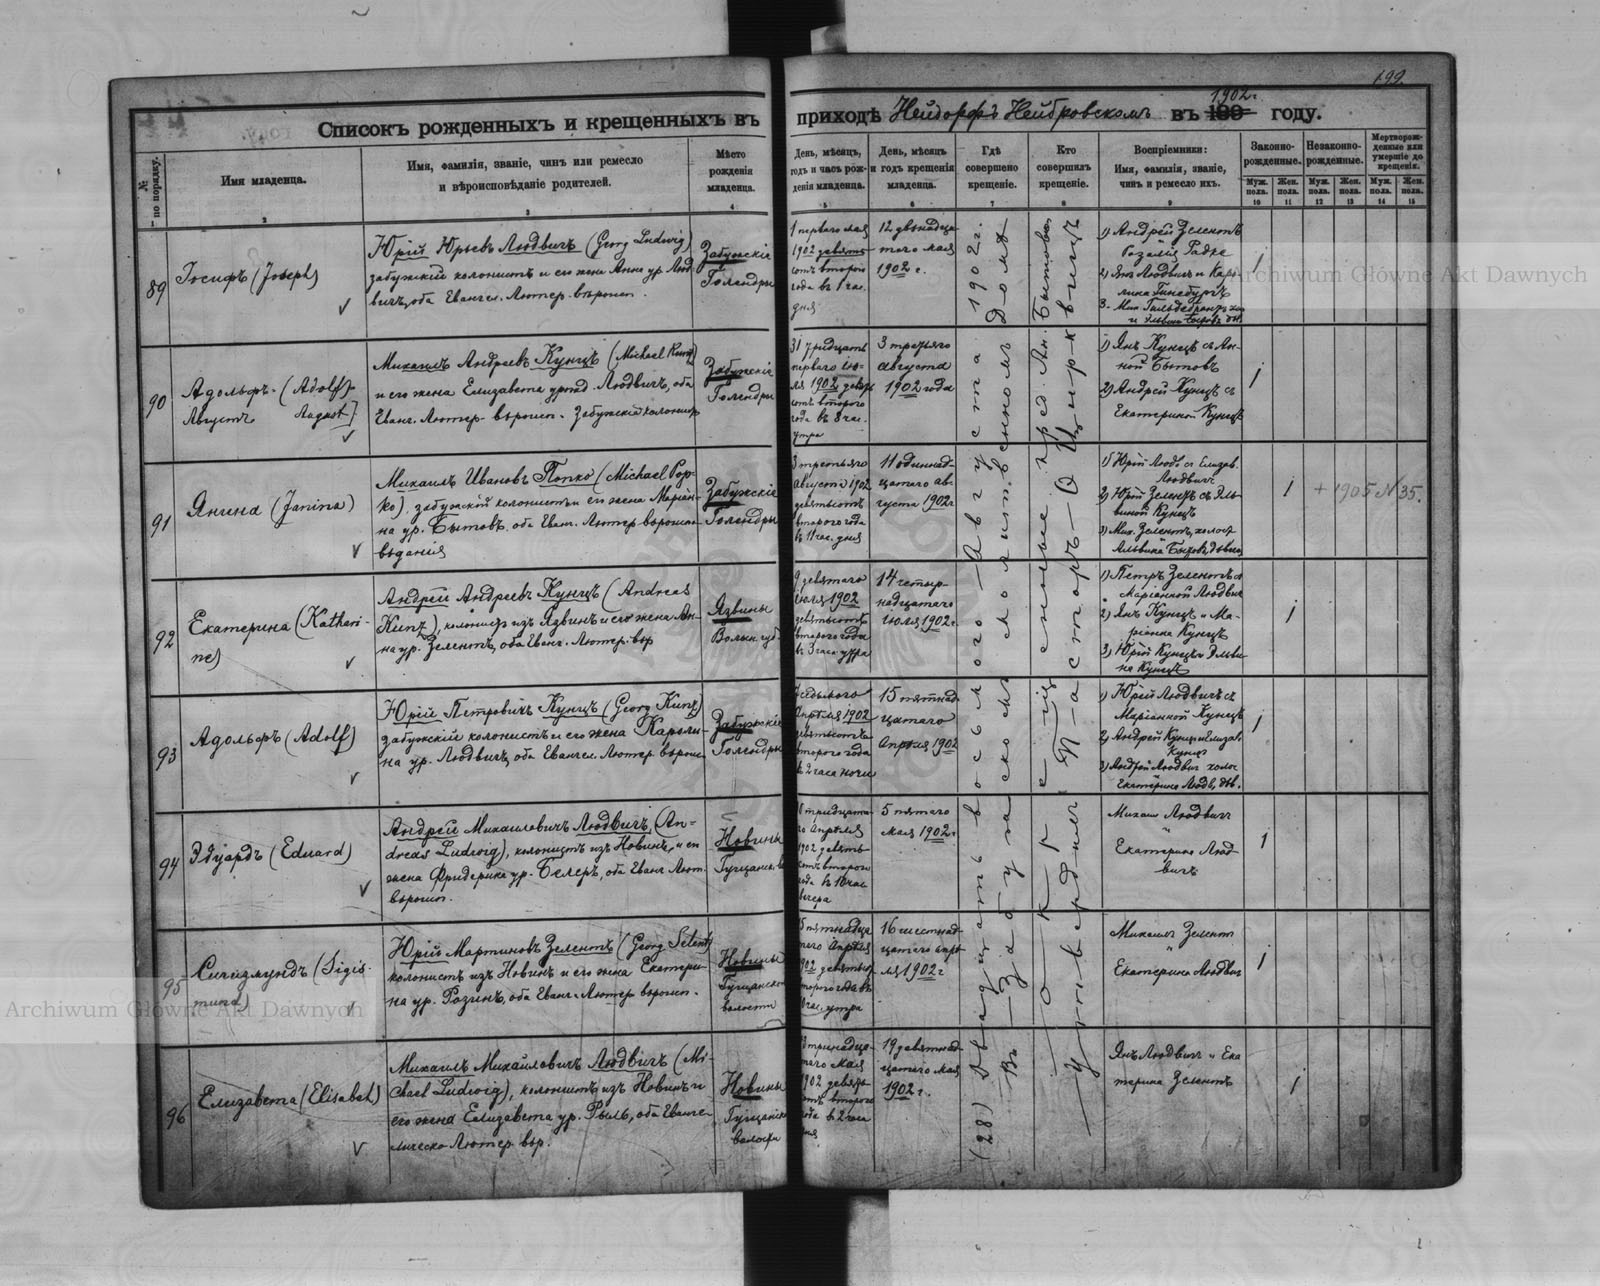 192
Списокъ рожденныхъ и крещенныхъ въ приходѣ Нейдорфъ Нейбровскомъ въ 1902 г. году.
№ по порядку.
Имя младенца.
Имя, фамилія, званіе, чинъ или ремесло
и вѣроисповѣданіе родителей.
Мѣсто
рожденія
младенца.
День, мѣсяцъ,
годъ и часъ рож-
денія младенца.
День, мѣсяцъ
и годъ крещенія
младенца.
Гдѣ
совершено
крещеніе.
Кто
совершилъ
крещеніе.
Воспріемники:
Имя, фамилія, званіе,
чинъ и ремесло ихъ.
Законно-
рожденные.
Незаконно-
рожденные.
Мертворож-
денные или
умершіе до
крещенія.
Муж. пола.
Жен. пола.
Муж. пола.
Жен. пола.
Муж. пола.
Жен. пола.
1 2 3 4 5 6 7 8 9 10 11 12 13 14 15
89
Іосифъ (Joseph)
Юрій Юрьевъ Людвичъ (Georg Ludwig)
забужскій колонистъ и его жена Анна ур. Люд-
вичъ, оба Евангел. Лютер. вѣроисп.
Забужскіе
Голендры
1 перваго мая
1902 девять-
сотъ второго
года въ 1 час.
дня
12 двѣнадца-
таго мая
1902 г.
1) Андрей Зелентъ
Розалія Радке
2) Янъ Людвигъ и Каро-
лина Гинсбургъ
1
90
Адольфъ (Adolf)-
Августъ August]
Михаилъ Андреевъ Кунцъ (Michael Kunz)
и его жена Елизавета урожд. Людвичъ, оба
Еванг. Лютер. вѣроисп. Забужскій колонистъ
Забужскіе
Голендры
31 тридцать
перваго ію-
ля 1902 девят
сотъ второго
года въ 8 час.
утра
3 третьяго
августа
1902 года
1) Янъ Кунцъ съ Ан-
ной Бытовъ
2) Андрей Кунцъ съ
Екатериной Кунцъ
1
91
Янина (Janina)
Михаилъ Ивановъ Попко (Michael Pop-
ko), забужскій колонистъ и его жена Маріан-
на ур. Бытовъ, оба Еванг. Лютер. вѣроиспо-
вѣданія
Забужскіе
Голендры
3 третьяго
Августа 1902
девятьсотъ
второго года
въ 11 час. дня
11 одиннад-
цатаго ав-
густа 1902 г
1) Юрій Людв. съ Елизав.
Людвичъ
2) Юрій Зелентъ съ Эль-
виной Кунцъ
3) Мих. Зелентъ, холост
Альвина Бытовъ, дѣвица
1
+ 1905 N 35.
92
Екатерина (Kathari-
ne)
Андрей Андреевъ Кунцъ (Andreas
Kunz), колонистъ изъ Язвинъ и его жена Ан-
на ур. Зелентъ, оба Еванг. Лютер. вѣр
Язвины
Волын. губ.
9 девятаго
Іюля 1902
девятьсотъ
второго года
въ 3 часа утра
14 четыр-
надцатаго
Іюля 1902 г.
1) Петръ Зелентъ съ
Маріанной Людвич
2) Янъ Кунцъ и Ма-
ріанна Кунцъ
3) Юрій Кунцъ и Эльви-
на Кунцъ
1
93
Адольфъ (Adolf)
Юрій Петровичъ Кунцъ (Georg Kunz)
забужскій колонистъ и его жена Кароли-
на ур. Людвичъ, оба Евангел. Лютер. вѣроисп.
Забужскіе
Голендры
7 седьмого
Апрѣля 1902
девятьсотъ
второго года
въ 2 часа ночи
15 пятнад-
цатаго
Апрѣля 1902
1) Юрій Людвичъ съ
Маріанной Кунцъ
2) Андрей Кунцъ и Елизав.
Кунцъ
3) Андрей Людвич холос.
Екатерина Людв. дѣв.
1
94
Эдуардъ (Eduard)
Андрей Михаиловичъ Людвичъ, (An-
dreas Ludwig), колонистъ изъ Новинъ, и его
жена Фридерика ур. Белеръ, оба Еванг. Лют.
вѣроисп.
Новины
Гущанск.
тридцата-
го Апрѣля
1902 девять-
сотъ второго
года въ 10 час
вечера
5 пятаго
мая 1902 г
Михаил Людвигъ
"
Екатерина Люд-
вигъ
1
95
Сигизмундъ (Sigis-
mund)
Юрій Мартиновъ Зелентъ (Georg Selent)
колонистъ изъ Новинъ и его жена Екатери-
на ур. Розинъ, оба Еванг. Лютер. вѣроисп.
Новины
Гущанской
волости
15 пятнадца
таго Апрѣля
1902 девятьсот
второго года въ
час. утра
16 шестнад-
цатаго апрѣ-
ля 1902 г
Михаилъ Зелентъ
"
Екатерина Людвиг
1
96
Елизавета (Elisabet)
Михаилъ Михайловичъ Людвичъ (Mi-
chael Ludwig), колонистъ изъ Новинъ и
его жена Елизавета ур. Рыль, оба Еванге-
лическо Лютер. вѣр.
Новины
Гущанской
волости
13 тринадца-
таго мая
1902 девять
сотъ второго
года въ 2 часа
дня
19 девятнад-
цатаго мая
1902 г.
Янъ Людвигъ и Ека
терина Зелентъ
1
(28) Двадцать восьмого Августа 1902 г.
Въ Забужскомъ молитвенномъ Домѣ
Утвердилъ Пасторъ
Archiwum Główne Akt Dawnych
Archiwum Główne Akt Dawnych